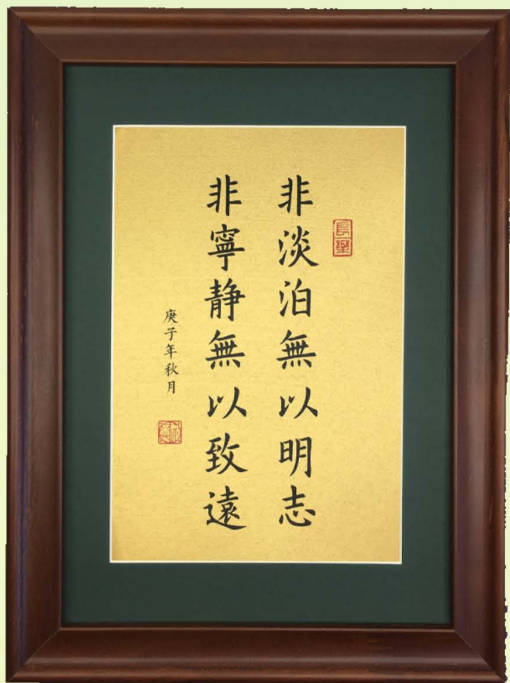 非淡泊無以明志
非寧静無以致遠
庚子年秋月